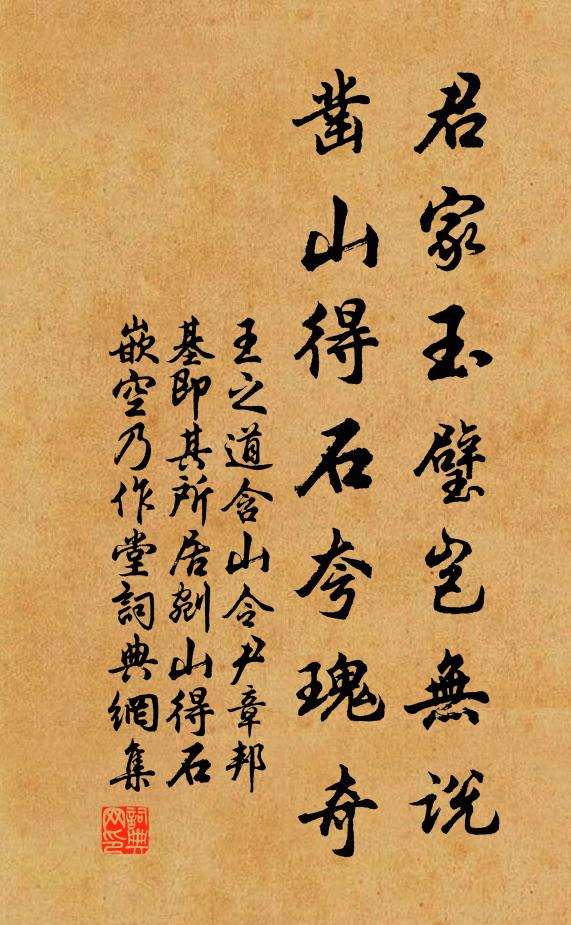 君家玉璧岂無说
凿山得石夸瑰奇
王之道含山令尹章邦
基即其所居剜山得石
嵌空乃作堂詞典網集
詞典網印